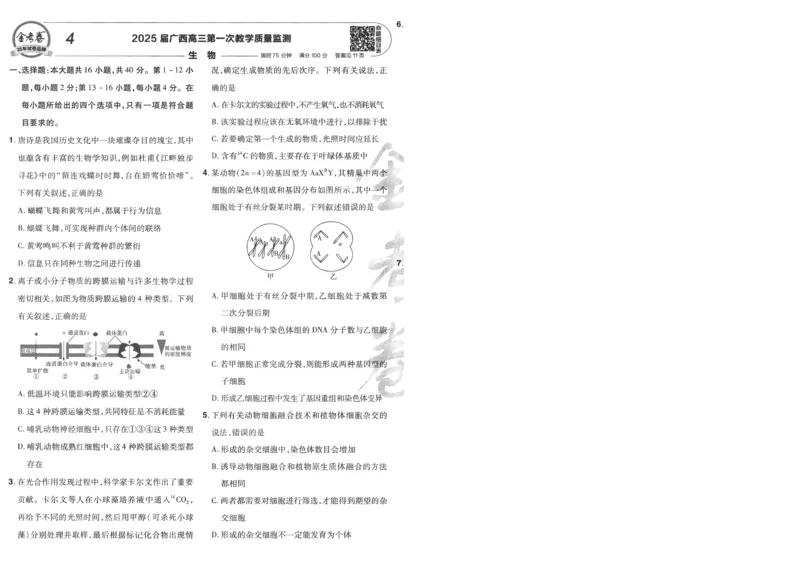 金考卷
25年试卷品牌
4
2025 届广西高三第一次教学质量监测
生 物
限时 75 分钟 满分 100 分 答案见 11 页
一、选择题:本大题共 16 小题,共 40 分。第 1－12 小
题,每小题 2 分;第 13－16 小题,每小题 4 分。在
每小题所给出的四个选项中,只有一项是符合题
目要求的。
1. 唐诗是我国历史文化中一块璀璨夺目的瑰宝,其中
也蕴含有丰富的生物学知识,例如杜甫《江畔独步
寻花》中的“留连戏蝶时时舞,自在娇莺恰恰啼”。
下列有关叙述,正确的是
A. 蝴蝶飞舞和黄莺叫声,都属于行为信息
B. 蝴蝶飞舞,可实现种群内个体间的联络
C. 黄莺鸣叫不利于黄莺种群的繁衍
D. 信息只在同种生物之间进行传递
2. 离子或小分子物质的跨膜运输与许多生物学过程
密切相关,如图为物质跨膜运输的 4 种类型。下列
有关叙述,正确的是
通道蛋白 载体蛋白 高
被运输物质的浓度梯度
通道蛋白介导 载体蛋白介导 能量 低
简单扩散 主动运输
① ② ③ ④
A. 低温环境只能影响跨膜运输类型②④
B. 这 4 种跨膜运输类型,共同特征是不消耗能量
C. 哺乳动物神经细胞中,只存在①③④这 3 种类型
D. 哺乳动物成熟红细胞中,这 4 种跨膜运输类型都
存在
3. 在光合作用发现过程中,科学家卡尔文作出了重要
贡献。卡尔文等人在小球藻培养液中通入¹⁴CO₂,
再给予不同的光照时间,然后用甲醇(可杀死小球
藻)分别处理并取样,最后根据标记化合物出现情
况,确定生成物质的先后次序。下列有关说法,正
确的是
A. 在卡尔文的实验过程中,不产生氧气,也不消耗氧气
B. 该实验过程应该在无氧环境中进行,以排除干扰
C. 若要确定第一个生成的物质,光照时间应延长
D. 含有¹⁴C 的物质,主要存在于叶绿体基质中
4. 某动物(2n＝4)的基因型为 AaXᴮY,其精巢中两个
细胞的染色体组成和基因分布如图所示,其中一个
细胞处于有丝分裂某时期。下列叙述错误的是
甲 乙
A. 甲细胞处于有丝分裂中期,乙细胞处于减数第
二次分裂后期
B. 甲细胞中每个染色体组的 DNA 分子数与乙细胞
的相同
C. 若甲细胞正常完成分裂,则能形成两种基因型的
子细胞
D. 形成乙细胞过程中发生了基因重组和染色体变异
5. 下列有关动物细胞融合技术和植物体细胞杂交的
说法,错误的是
A. 形成的杂交细胞中,染色体数目会增加
B. 诱导动物细胞融合和植物原生质体融合的方法
都相同
C. 两者都需要对细胞进行筛选,才能得到期望的杂
交细胞
D. 形成的杂交细胞不一定能发育为个体
6.
7.